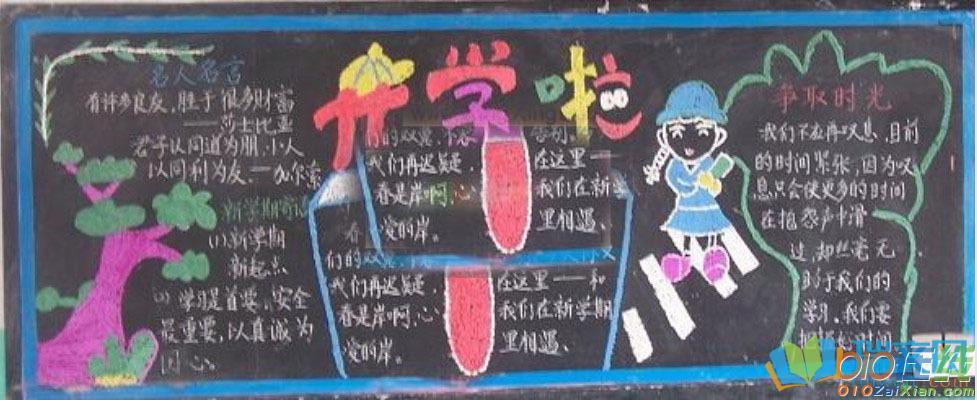 开学啦
名人名言
有许多良友，胜于很多财富
——莎士比亚
君子以同道为朋，小人
以同利为友。——
新学期寄语
(1)新学期
新起点
(2)学习是首要，安全
最重要，以真诚为
同心。
们的双翼，不
我们再迟疑，
春是岸啊，心
爱的岸。
在这里——
我们在新学
里相遇。
们的双
我们再迟疑，
春是岸啊，心
爱的岸。
在这里——和
我们在新学期
里相遇、
争取时光
我们不应再叹息，目前
的时间紧张，因为叹
息只会使更多的时间
在抱怨声中滑
过，却丝毫无
助于我们的
学习。我们要
时间
010在线
010ZaiXian.com